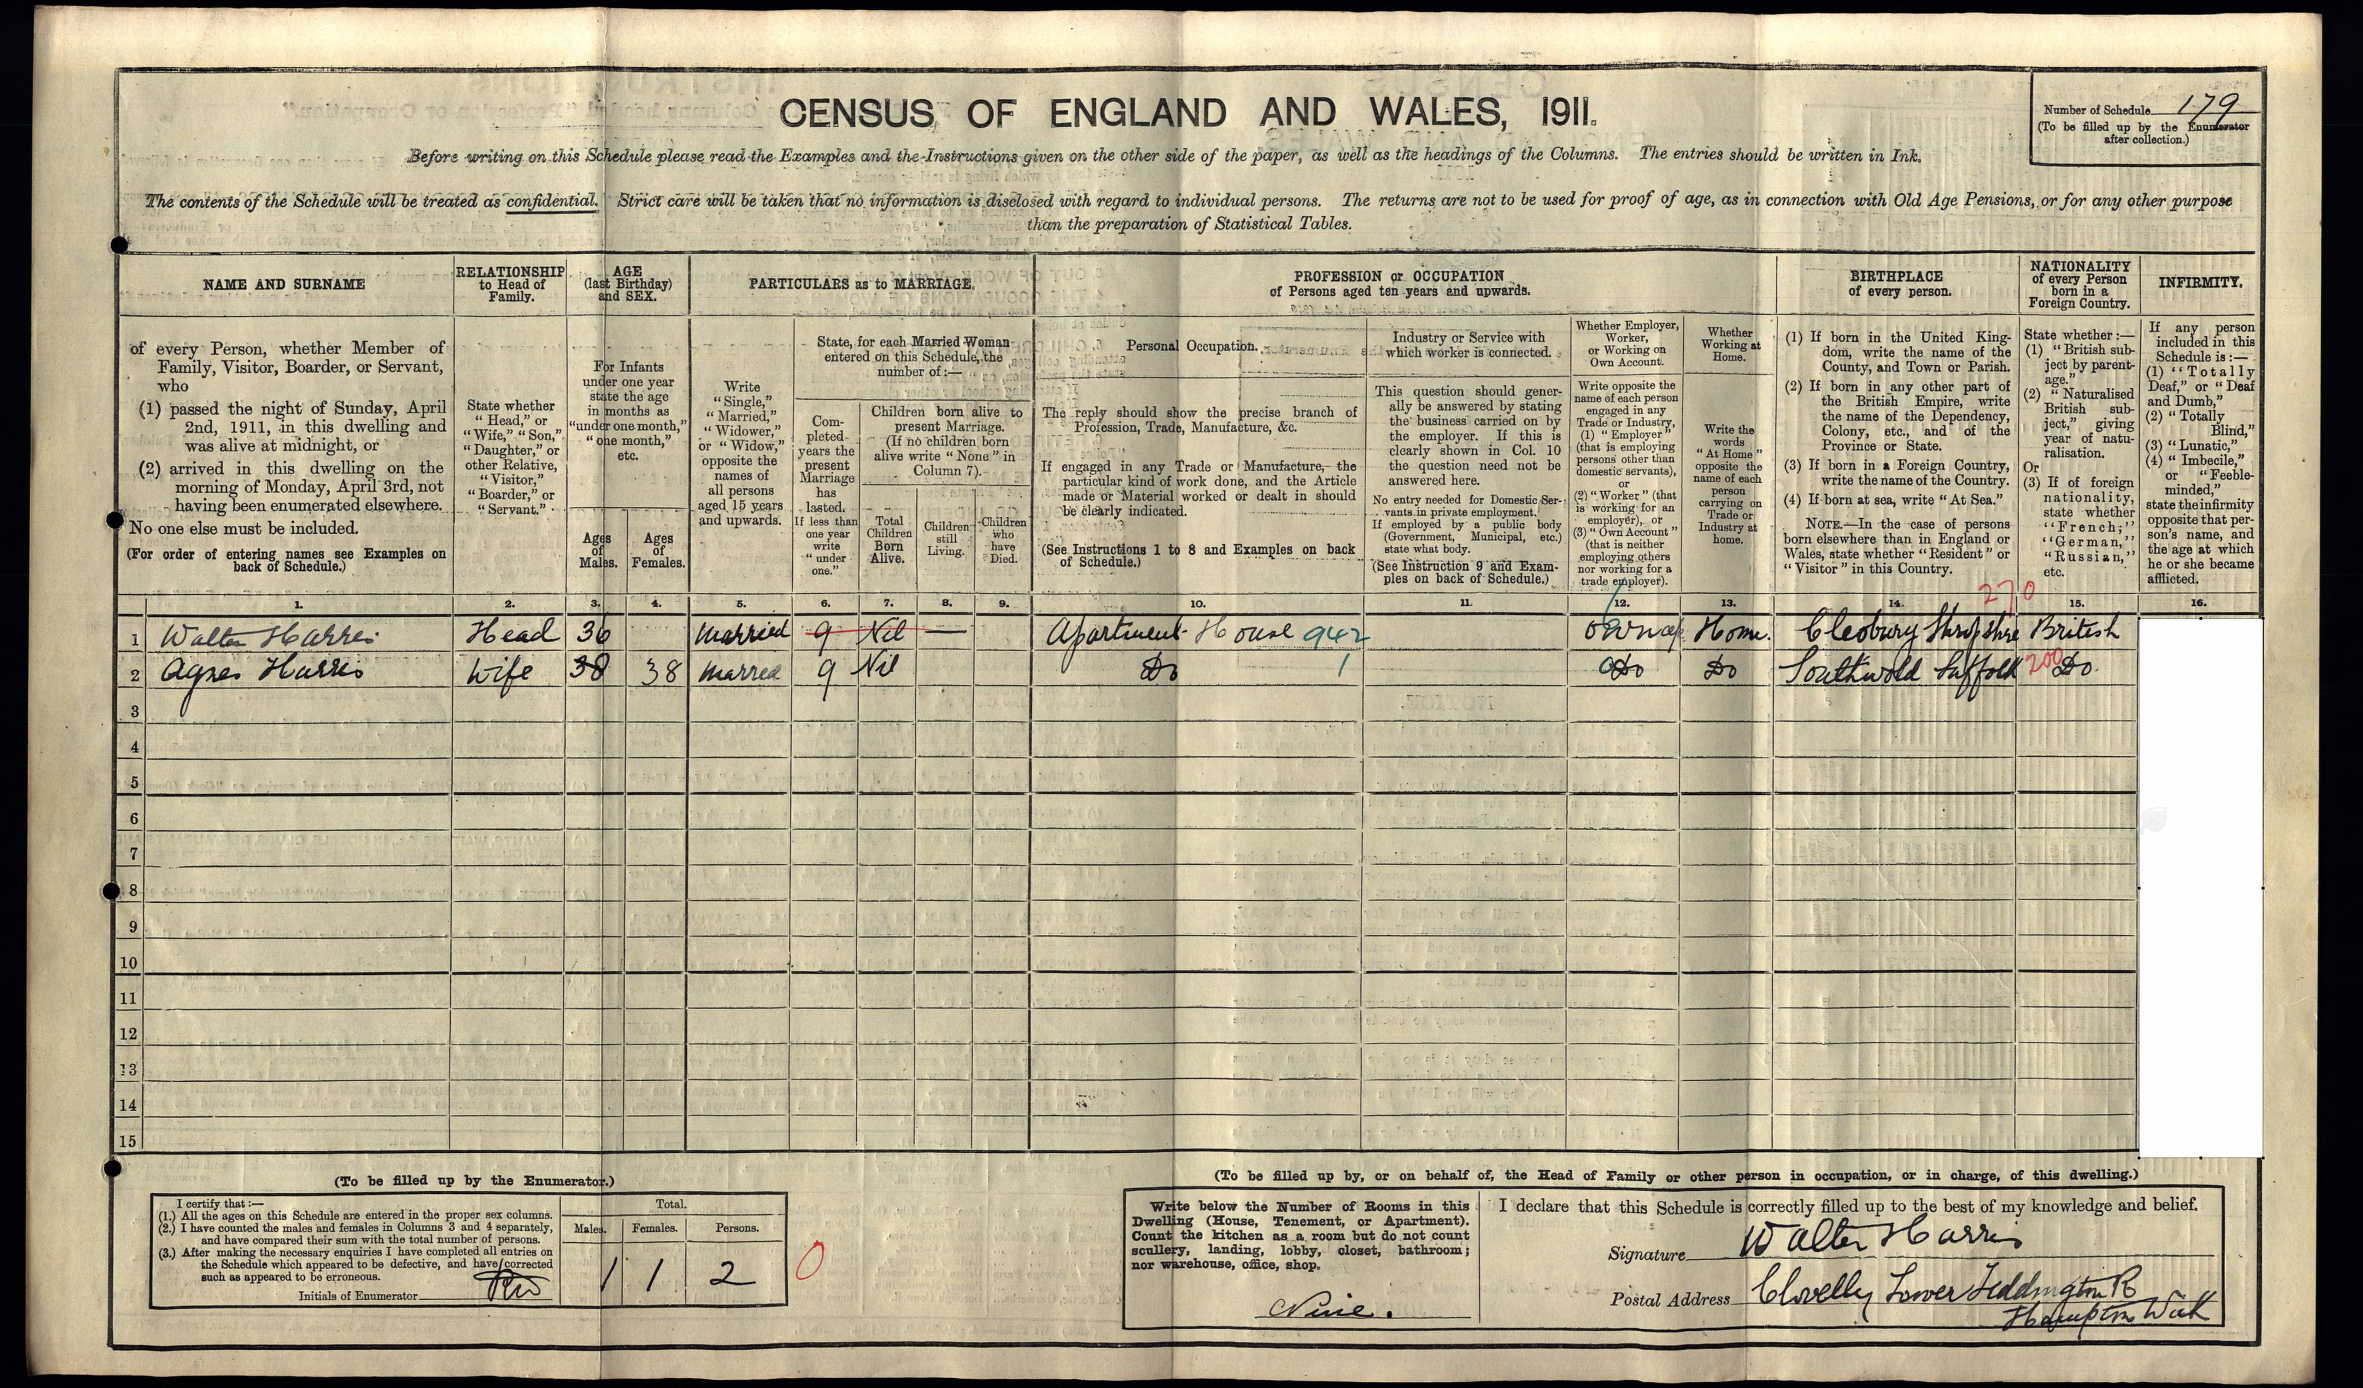 CENSUS OF ENGLAND AND WALES, 1911.
Number of Schedule 179
(To be filled up by the Enumerator
after collection.)
Before writing on this Schedule please read the Examples and the Instructions given on the other side of the paper, as well as the headings of the Columns. The entries should be written in Ink.
The contents of the Schedule will be treated as confidential. Strict care will be taken that no information is disclosed with regard to individual persons. The returns are not to be used for proof of age, as in connection with Old Age Pensions, or for any other purpose
than the preparation of Statistical Tables.
NAME AND SURNAME
of every Person, whether Member of
Family, Visitor, Boarder, or Servant,
who
(1) passed the night of Sunday, April
2nd, 1911, in this dwelling and
was alive at midnight, or
(2) arrived in this dwelling on the
morning of Monday, April 3rd, not
having been enumerated elsewhere.
No one else must be included.
(For order of entering names see Examples on
back of Schedule.)
RELATIONSHIP
to Head of
Family.
State whether
"Head," or
"Wife," "Son,"
"Daughter," or
other Relative,
"Visitor,"
"Boarder," or
"Servant."
AGE
(last Birthday)
and SEX.
For Infants
under one year
state the age
in months as
"under one month,"
"one month,"
etc.
Ages
of
Males.
Ages
of
Females.
PARTICULARS as to MARRIAGE.
Write
"Single,"
"Married,"
"Widower,"
or "Widow,"
opposite the
names of
all persons
aged 15 years
and upwards.
State, for each Married Woman
entered on this Schedule, the
number of:—
Com-
pleted
years the
present
Marriage
has
lasted.
If less than
one year
write
"under
one."
Children born alive to
present Marriage.
(If no children born
alive write "None" in
Column 7).
Total
Children
Born
Alive.
Children
still
Living.
Children
who
have
Died.
PROFESSION or OCCUPATION
of Persons aged ten years and upwards.
Personal Occupation.
The reply should show the precise branch of
Profession, Trade, Manufacture, &c.
If engaged in any Trade or Manufacture, the
particular kind of work done, and the Article
made or Material worked or dealt in should
be clearly indicated.
(See Instructions 1 to 8 and Examples on back
of Schedule.)
Industry or Service with
which worker is connected.
This question should gener-
ally be answered by stating
the business carried on by
the employer. If this is
clearly shown in Col. 10
the question need not be
answered here.
No entry needed for Domestic Ser-
vants in private employment.
If employed by a public body
(Government, Municipal, etc.)
state what body.
(See Instruction 9 and Exam-
ples on back of Schedule.)
Whether Employer,
Worker,
or Working on
Own Account.
Write opposite the
name of each person
engaged in any
Trade or Industry,
(1) "Employer"
(that is employing
persons other than
domestic servants),
or
(2) "Worker" (that
is working for an
employer), or
(3) "Own Account"
(that is neither
employing others
nor working for a
trade employer).
Whether
Working at
Home.
Write the
words
"At Home"
opposite the
name of each
person
carrying on
Trade or
Industry at
home.
BIRTHPLACE
of every person.
(1) If born in the United King-
dom, write the name of the
County, and Town or Parish.
(2) If born in any other part of
the British Empire, write
the name of the Dependency,
Colony, etc., and of the
Province or State.
(3) If born in a Foreign Country,
write the name of the Country.
(4) If born at sea, write "At Sea."
NOTE.—In the case of persons
born elsewhere than in England or
Wales, state whether "Resident" or
"Visitor" in this Country.
NATIONALITY
of every Person
born in a
Foreign Country.
State whether:—
(1) "British sub-
ject by parent-
age."
(2) "Naturalised
British sub-
ject," giving
year of natu-
ralisation.
Or
(3) If of foreign
nationality,
state whether
"French,"
"German,"
"Russian,"
etc.
INFIRMITY.
If any person
included in this
Schedule is:—
(1) "Totally
Deaf," or "Deaf
and Dumb,"
(2) "Totally
Blind,"
(3) "Lunatic,"
(4) "Imbecile,"
or "Feeble-
minded,"
state the infirmity
opposite that per-
son's name, and
the age at which
he or she became
afflicted.
1. 2. 3. 4. 5. 6. 7. 8. 9. 10. 11. 12. 13. 14. 15. 16.
270
1 Walter Harris Head 36 Married 9 Nil — Apartment House 942 Home. Cleobury Shropshire British
2 Agnes Harris Wife 38 38 Married 9 Nil Do 1 Do Do Southwold Suffolk 200 Do
3
4
5
6
7
8
9
10
11
12
13
14
15
(To be filled up by the Enumerator.)
I certify that:—
(1.) All the ages on this Schedule are entered in the proper sex columns.
(2.) I have counted the males and females in Columns 3 and 4 separately,
and have compared their sum with the total number of persons.
(3.) After making the necessary enquiries I have completed all entries on
the Schedule which appeared to be defective, and have corrected
such as appeared to be erroneous.
Initials of Enumerator
Total.
Males. Females. Persons.
1 1 2
0
(To be filled up by, or on behalf of, the Head of Family or other person in occupation, or in charge, of this dwelling.)
Write below the Number of Rooms in this
Dwelling (House, Tenement, or Apartment).
Count the kitchen as a room but do not count
scullery, landing, lobby, closet, bathroom;
nor warehouse, office, shop.
Nine.
I declare that this Schedule is correctly filled up to the best of my knowledge and belief.
Signature Walter Harris
Postal Address Clovelly Lower Teddington R
Hampton Wick